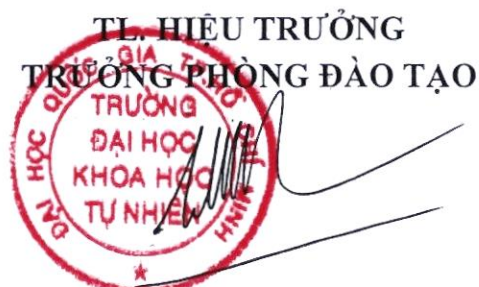 TL. HIỆU TRƯỞNG
TRƯỞNG PHÒNG ĐÀO TẠO
ĐẠI HỌC QUỐC GIA TP.HỒ CHÍ MINH
TRƯỜNG
ĐẠI HỌC
KHOA HỌC
TỰ NHIÊN